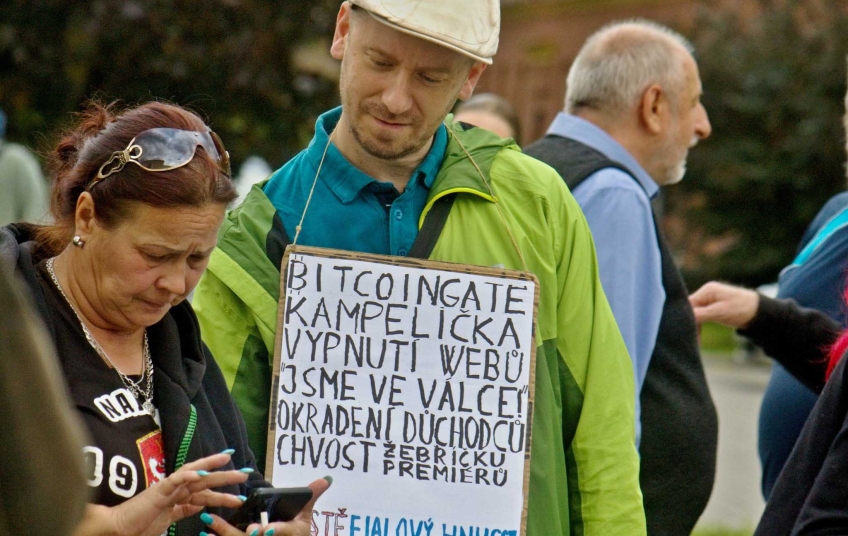 BITCOINGATE
KAMPELIČKA
VYPNUTÍ WEBŮ
"JSME VE VÁLCE!"
OKRADENÍ DŮCHODCŮ
CHVOST ŽEBŘÍČKU
PREMIÉRŮ
FIALOVÝ
NA
09